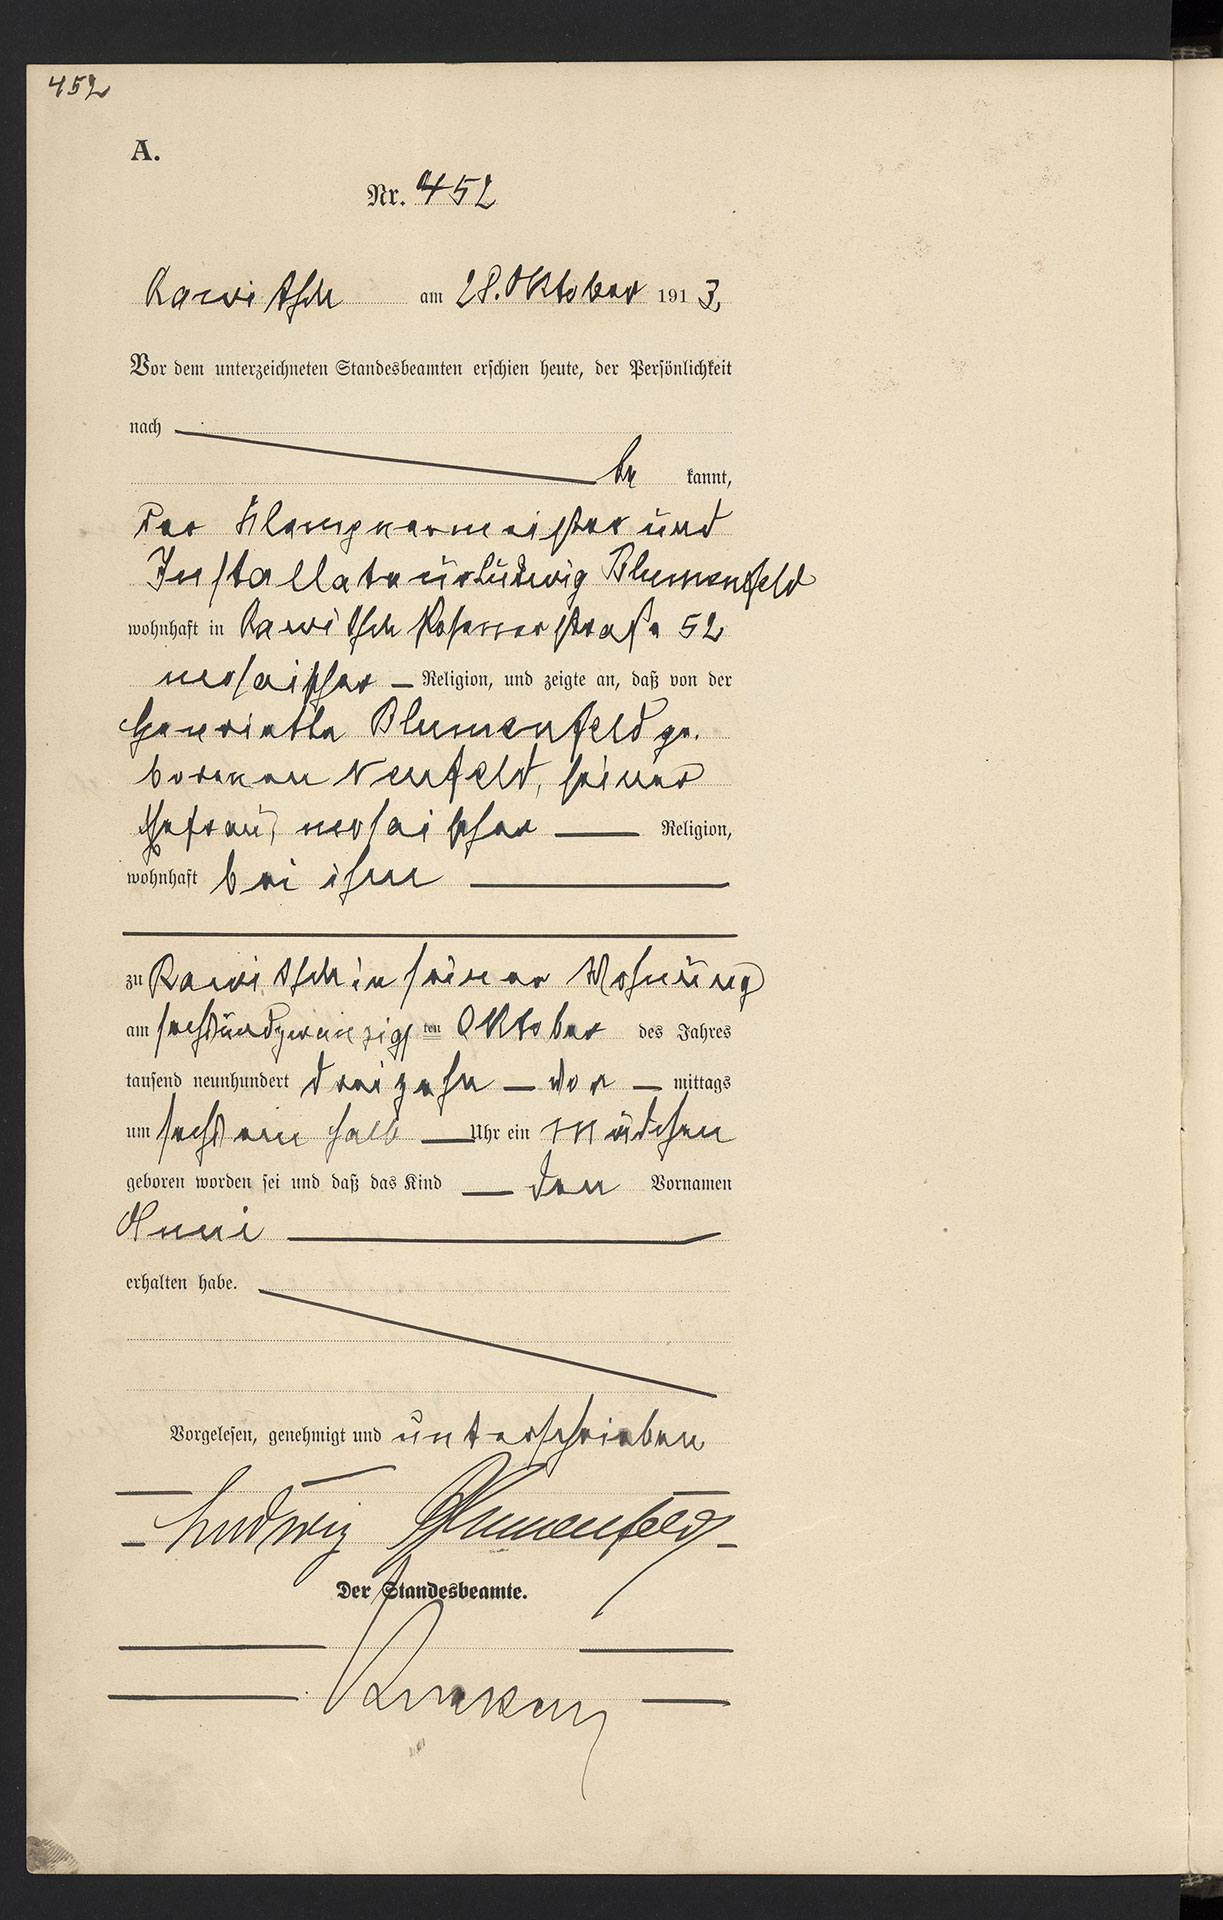 452
A.
Nr. 452
Rawitsch am 28. Oktober 1913
Vor dem unterzeichneten Standesbeamten erschien heute, der Persönlichkeit
nach
be kannt,
der Klempnermeister und
Installateur Ludwig Blumenfeld
wohnhaft in Rawitsch Posenerstraße 52
mosaischer Religion, und zeigte an, daß von der
Henriette Blumenfeld ge.
borenen Neufeld, seiner
Ehefrau, mosaischer Religion,
wohnhaft bei ihm
zu Rawitsch in seiner Wohnung
am sechsundzwanzigsten Oktober des Jahres
tausend neunhundert dreizehn vor mittags
um sechs ein halb Uhr ein Mädchen
geboren worden sei und daß das Kind den Vornamen
Anni
erhalten habe.
Vorgelesen, genehmigt und unterschrieben
Ludwig Blumenfeld
Der Standesbeamte.